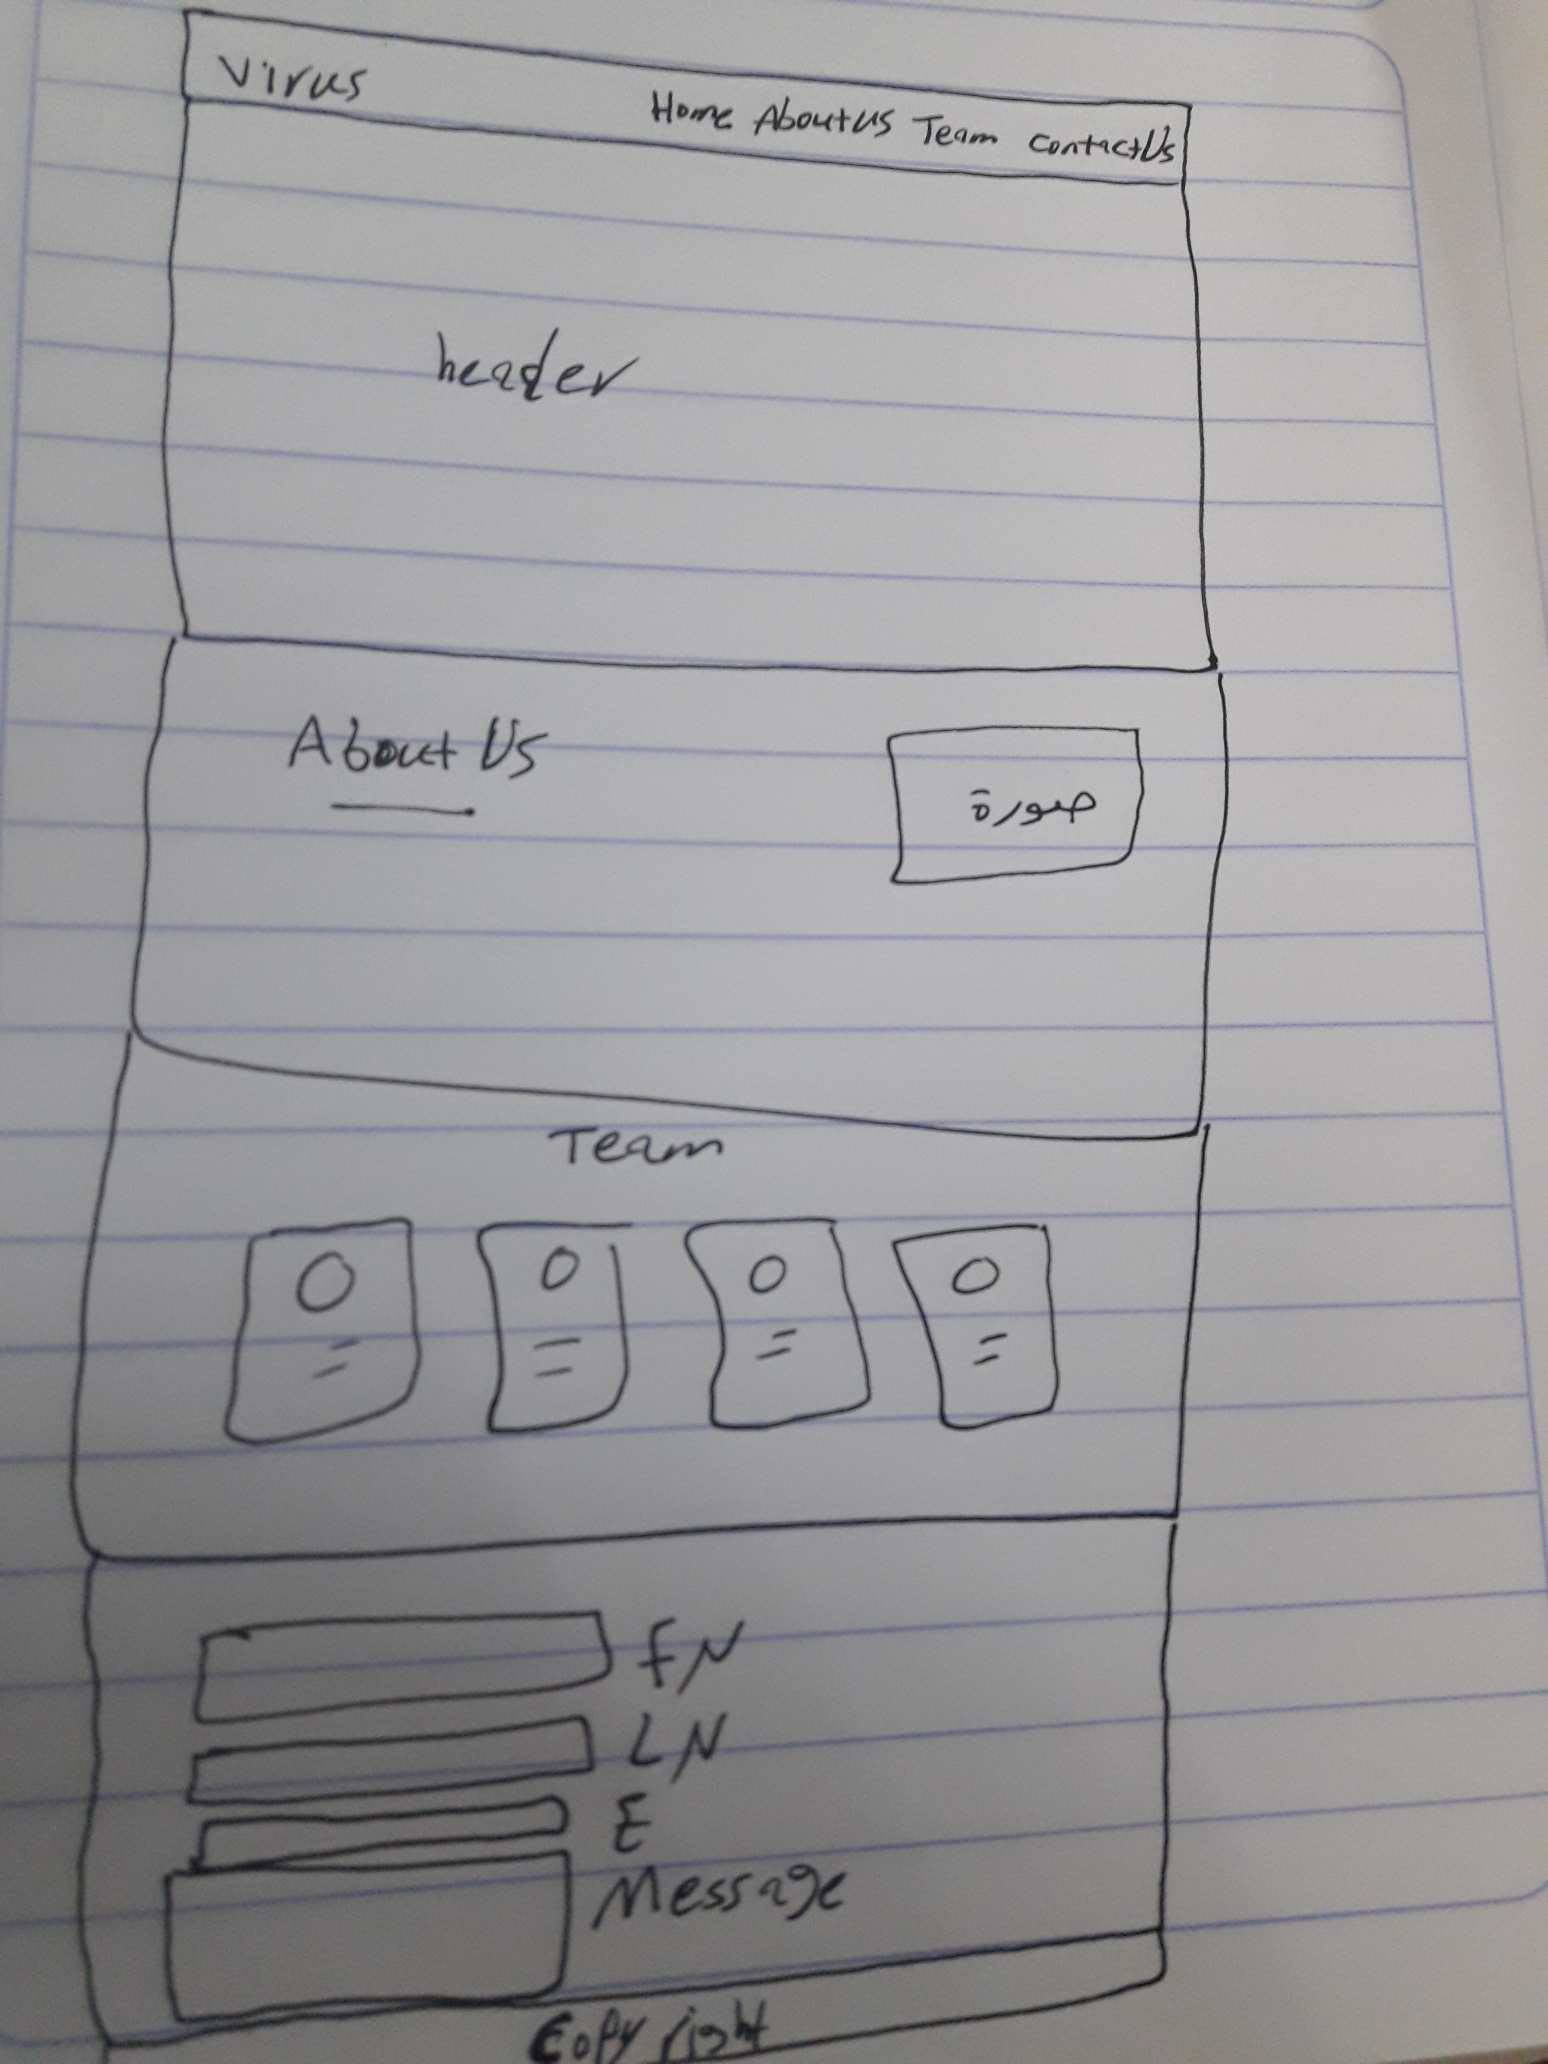 Virus
Home About us Team Contact Us
header
About Us
صورة
Team
FN
LN
E
Message
Copy right